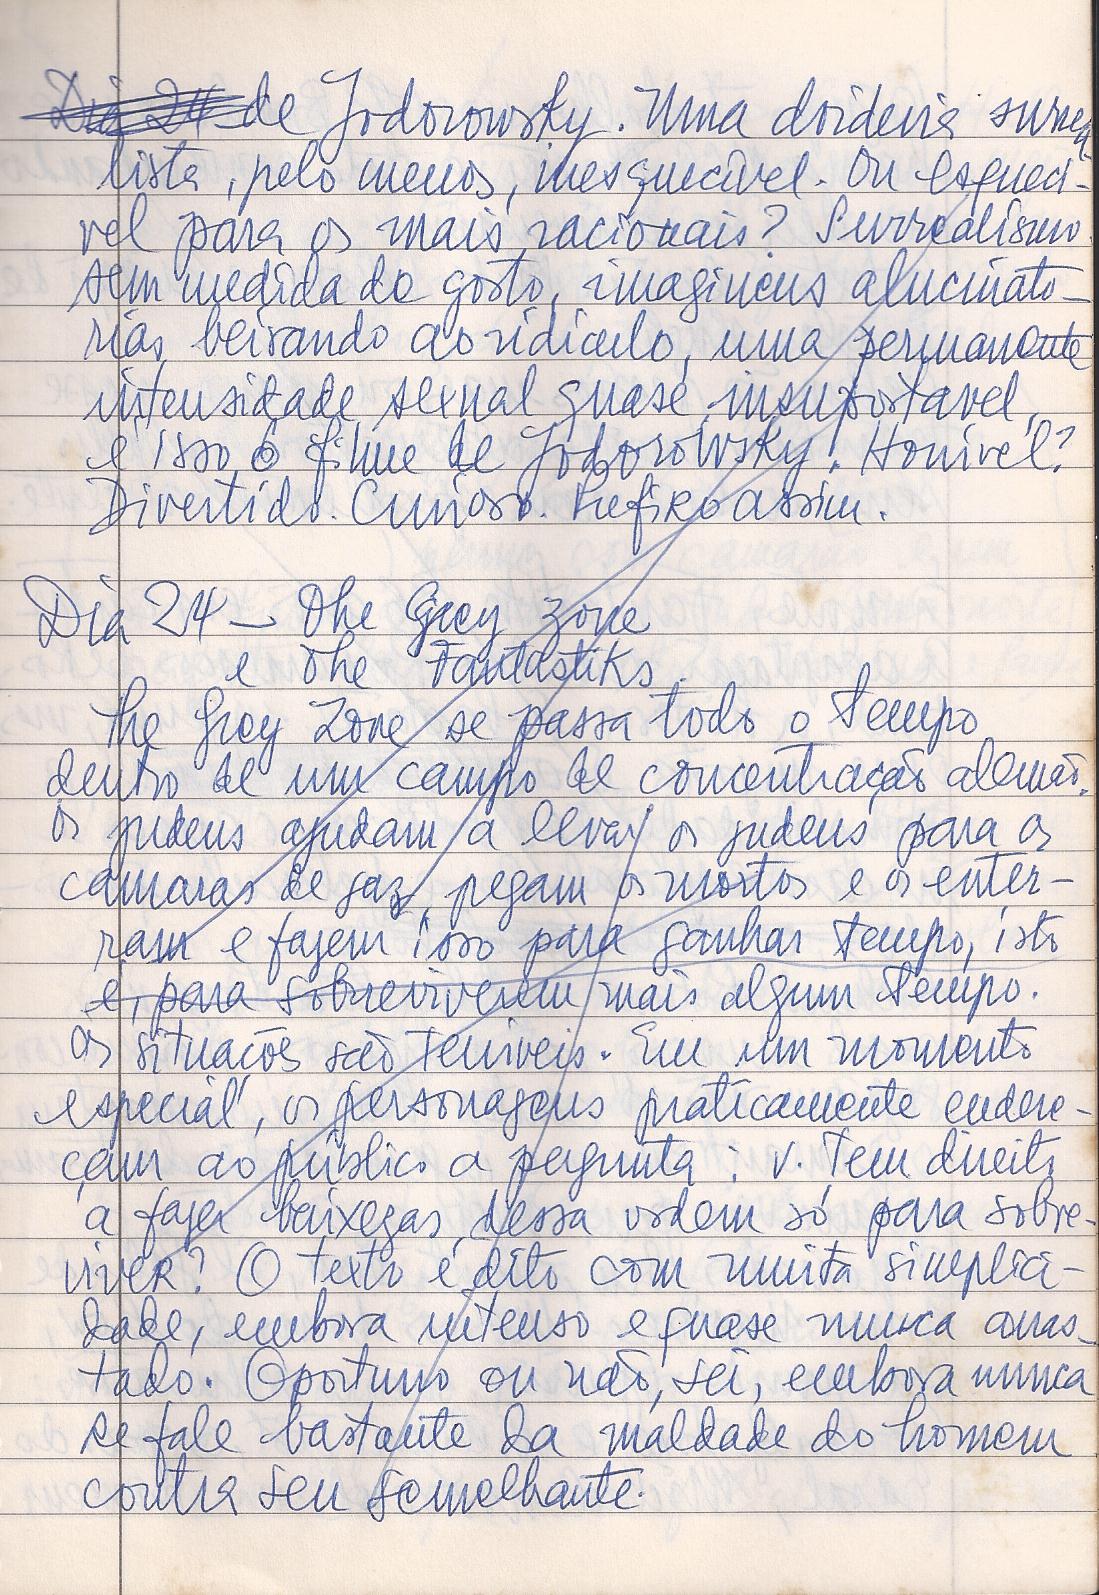 Dia 24 de Jodorowsky. Uma doideira surrea-
lista, pelo menos, inesquecível. Ou esqueci-
vel para os mais racionais? Surrealismo
sem medida do gosto, imagineus alucinato-
rias, beirando ao ridiculo, uma permanente
intensidade sexual quase insuportavel,
é isso o filme de Jodorowsky! Horrivel?
Divertido. Curioso. Prefiro assim.
Dia 24 - The Grey zone
e The Fantastiks.
The Grey Zone se passa todo o tempo
dentro de um campo de concentração alemão.
Os judeus ajudam a levar os judeus para as
camaras de gaz, pegam os mortos e os enter-
ram e fazem isso para ganhar tempo, isto
é, para sobreviverem mais algum tempo.
As situações são terriveis. Em um momento
especial, os personagens praticamente endere-
çam ao público a pergunta: v. tem direito
a fazer baixezas dessa ordem só para sobre-
viver? O texto é dito com muita simplici-
dade, embora intenso e quase nunca arras-
tado. Oportuno ou não, sei, embora nunca
se fale bastante da maldade do homem
contra seu semelhante.